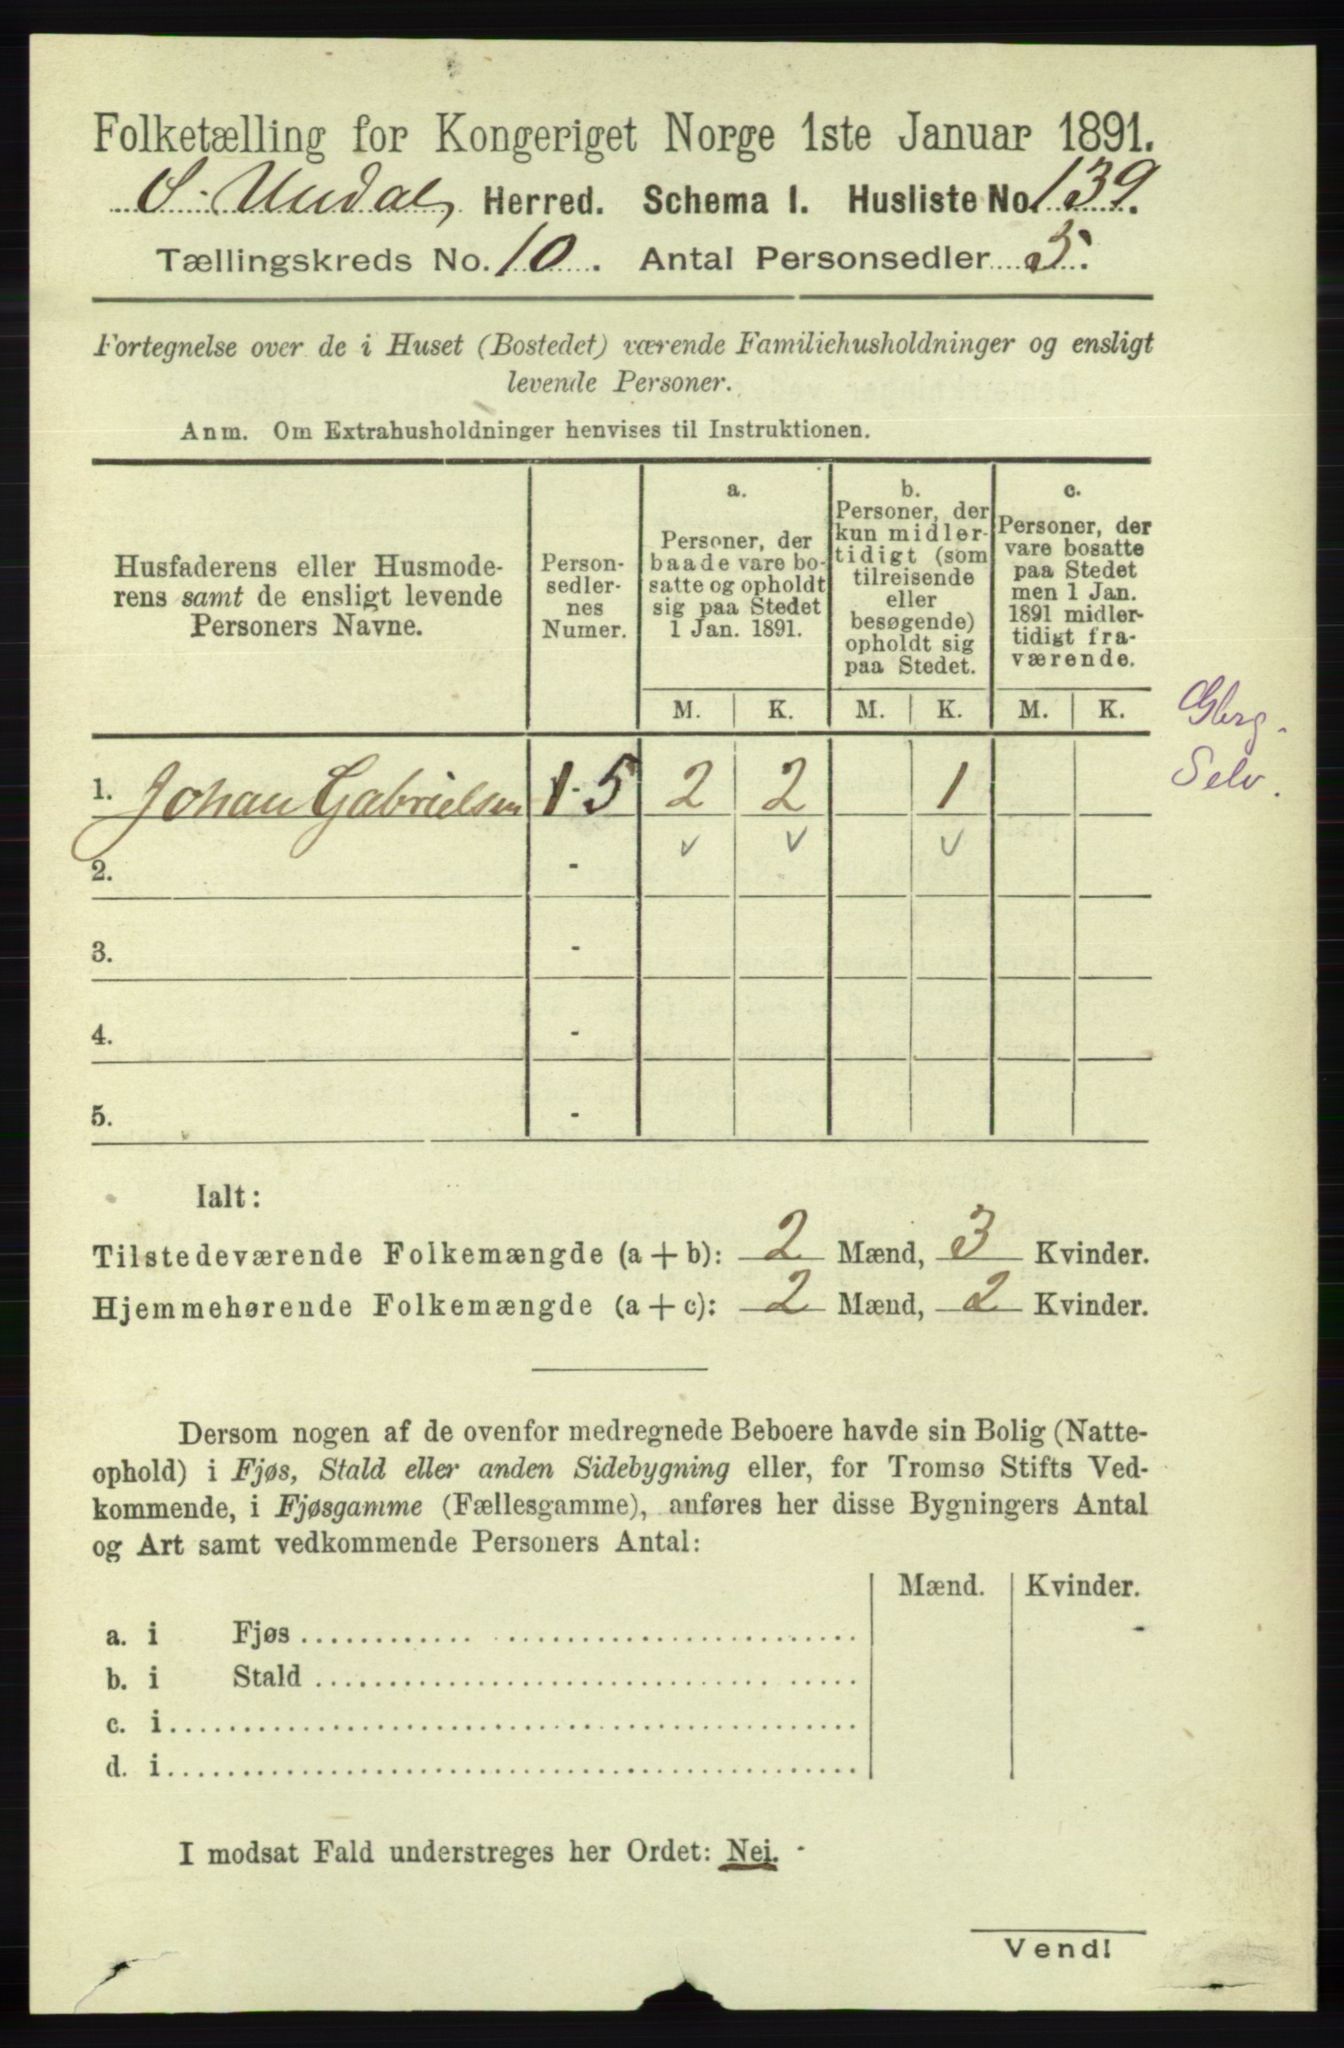 Folketælling for Kongeriget Norge 1ste Januar 1891.
S. Undal Herred. Schema I. Husliste No. 139.
Tællingskreds No. 10. Antal Personsedler 5.
Fortegnelse over de i Huset (Bostedet) værende Familiehusholdninger og ensligt
levende Personer.
Anm. Om Extrahusholdninger henvises til Instruktionen.
Husfaderens eller Husmode-
rens samt de ensligt levende
Personers Navne.
Person-
sedler-
nes
Numer.
a.
Personer, der
baade vare bo-
satte og opholdt
sig paa Stedet
1 Jan. 1891.
b.
Personer, der
kun midler-
tidigt (som
tilreisende
eller
besøgende)
opholdt sig
paa Stedet.
c.
Personer, der
vare bosatte
paa Stedet
men 1 Jan.
1891 midler-
tidigt fra-
værende.
M. K. M. K. M. K.
Gbrg.
Selv.
1. Johan Gabrielsen 1-5 2 2 1
2. -
3. -
4. -
5. -
Ialt:
Tilstedeværende Folkemængde (a + b): 2 Mænd, 3 Kvinder.
Hjemmehørende Folkemængde (a + c): 2 Mænd, 2 Kvinder.
Dersom nogen af de ovenfor medregnede Beboere havde sin Bolig (Natte-
ophold) i Fjøs, Stald eller anden Sidebygning eller, for Tromsø Stifts Ved-
kommende, i Fjøsgamme (Fællesgamme), anføres her disse Bygningers Antal
og Art samt vedkommende Personers Antal:
Mænd. Kvinder.
a. i Fjøs
b. i Stald
c. i
d. i
I modsat Fald understreges her Ordet: Nei.
Vend!